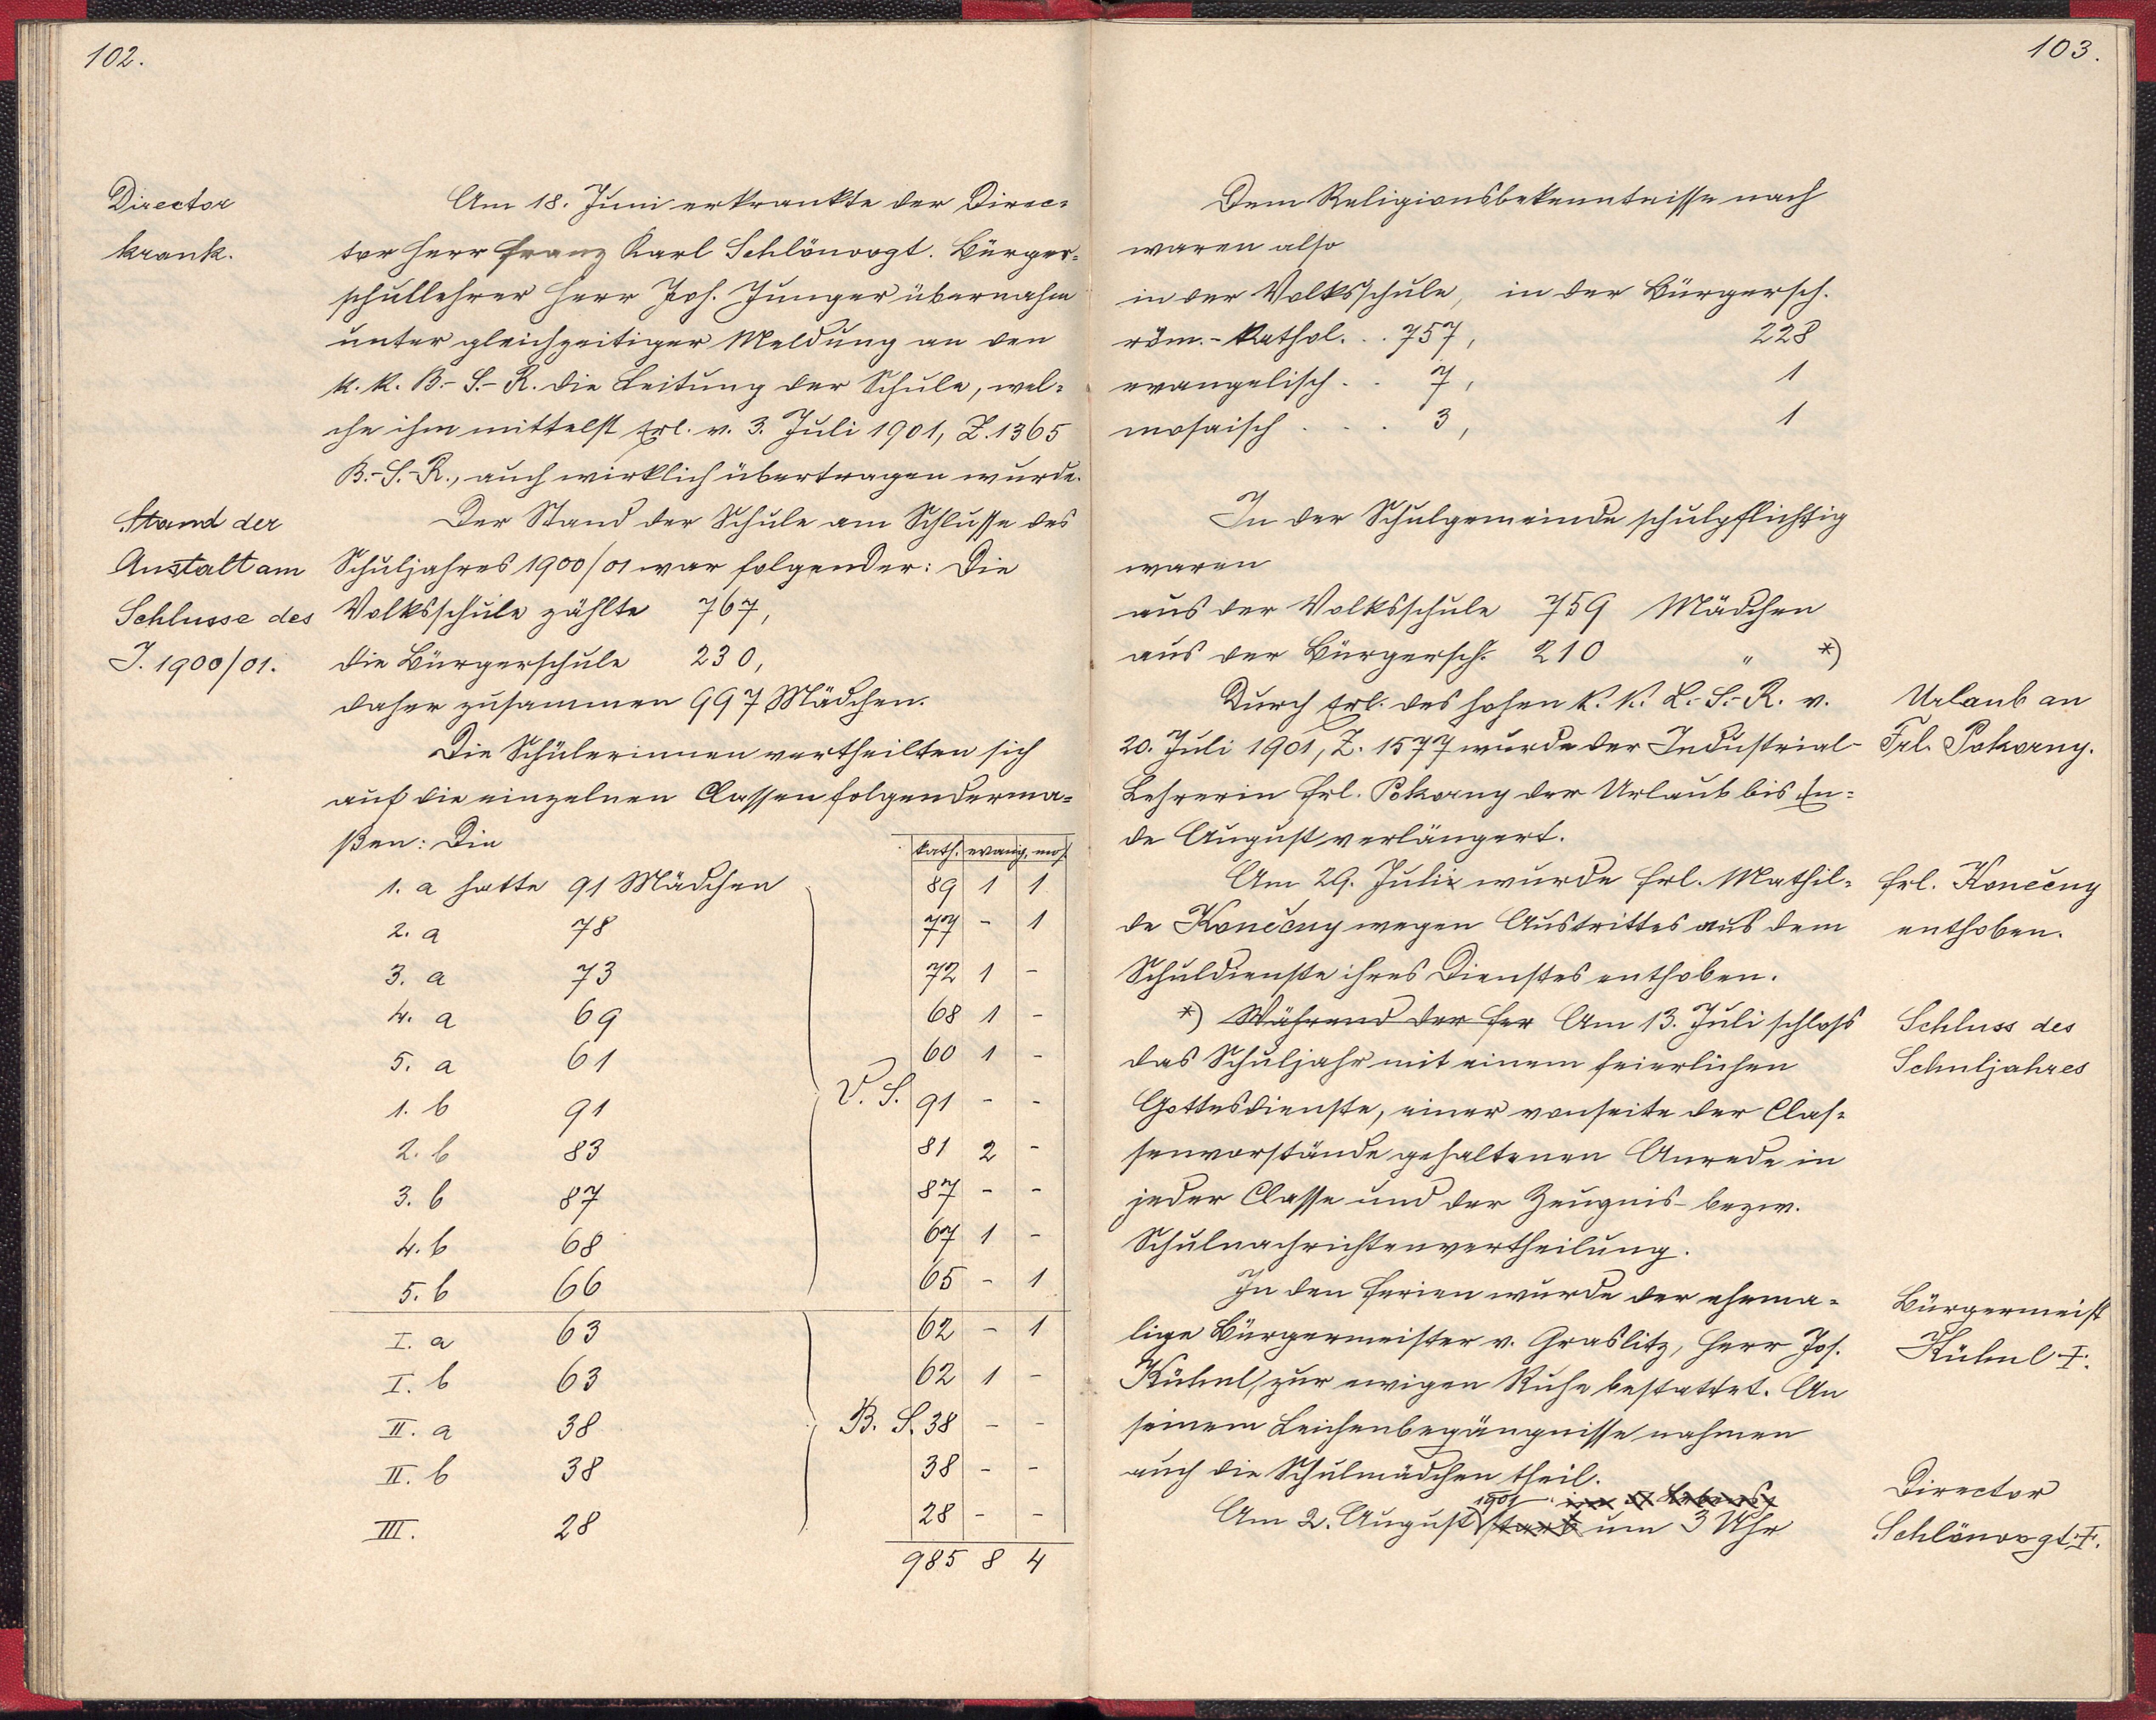 102.
Director
krank.
Am 18. Juni erkrankte der Direc=
tor Herr Franz Karl Schlönvogt. Bürger=
schullehrer Herr Joh. Junger übernahm
unter gleichzeitiger Meldung an den
k. k. B.-S.-R. die Leitung der Schule, wel=
che ihm mittelst Erl. v. 3. Juli 1901, Z. 1365
B.-S.-R., auch wirklich übertragen wurde.
Stand der
Anstalt am
Schlusse des
J. 1900/01.
Der Stand der Schule am Schlusse des
Schuljahres 1900/01 war folgender: Die
Volksschule zählte 767,
die Bürgerschule 230,
daher zusammen 997 Mädchen.
Die Schülerinnen vertheilten sich
auf die einzelnen Classen folgenderma=
ßen: Die
kath. evang. mos.
1. a hatte 91 Mädchen 89 1 1
2. a 78 77 - 1
3. a 73 72 1 -
4. a 69 68 1 -
5. a 61 60 1 -
1. b 91 V. S. 91 - -
2. b 83 81 2 -
3. b 87 87 - -
4. b 68 67 1 -
5. b 66 65 - 1
I. a 63 62 - 1
I. b 63 62 1 -
II. a 38 B. S. 38 - -
II. b 38 38 - -
III. 28 28 - -
985 8 4
103.
Dem Religionsbekenntnisse nach
waren also
in der Volksschule, in der Bürgersch.
röm.-kathol. . . 757, 228
evangelisch . . 7, 1
mosaisch . . . 3, 1
In der Schulgemeinde schulpflichtig
waren
aus der Volksschule 759 Mädchen
aus der Bürgersch. 210 " *)
Durch Erl. des hohen k. k. L.-S.-R. v.
20. Juli 1901, Z. 1577 wurde der Industrial-
Lehrerin Frl. Pokorny der Urlaub bis En=
de August verlängert.
Urlaub an
Frl. Pokorny.
Am 29. Juli wurde Frl. Mathil=
de Konečny wegen Austrittes aus dem
Schuldienste ihres Dienstes enthoben.
Frl. Konečny
enthoben.
*) Während der Fer Am 13. Juli schloss
das Schuljahr mit einem feierlichen
Gottesdienste, einer vonseite der Clas=
senvorstände gehaltenen Anrede in
jeder Classe und der Zeugnis- bezw.
Schulnachrichtenvertheilung.
Schluss des
Schuljahres
In den Ferien wurde der ehema=
lige Bürgermeister v. Graslitz, Herr Jos.
Kühnl, zur ewigen Ruhe bestattet. An
seinem Leichenbegängnisse nahmen
auch die Schulmädchen theil.
Bürgermeist
Kühnl †.
1901
Am 2. August starb um 3 Uhr
Director
Schlönvogt †.